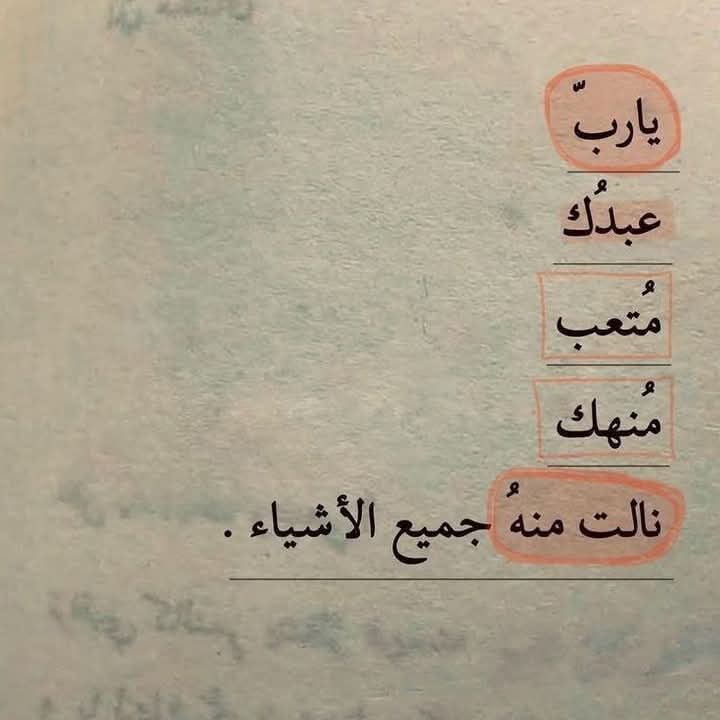 ياربّ
عبدُك
مُتعب
مُنهك
نالت منهُ جميع الأشياء .